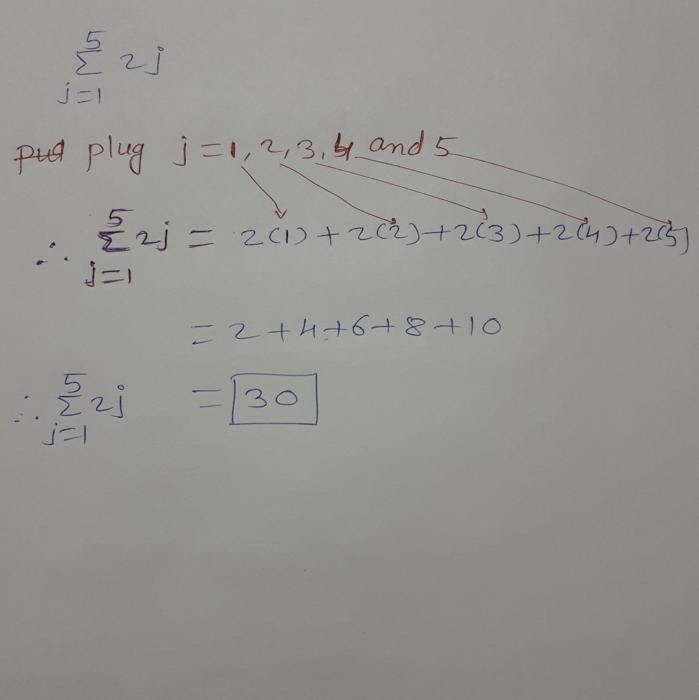 5
Σ 2j
j=1
put plug j=1,2,3,4 and 5
∴ 5 Σ j=1 2j = 2(1)+2(2)+2(3)+2(4)+2(5)
= 2+4+6+8+10
∴ 5 Σ j=1 2j = 30